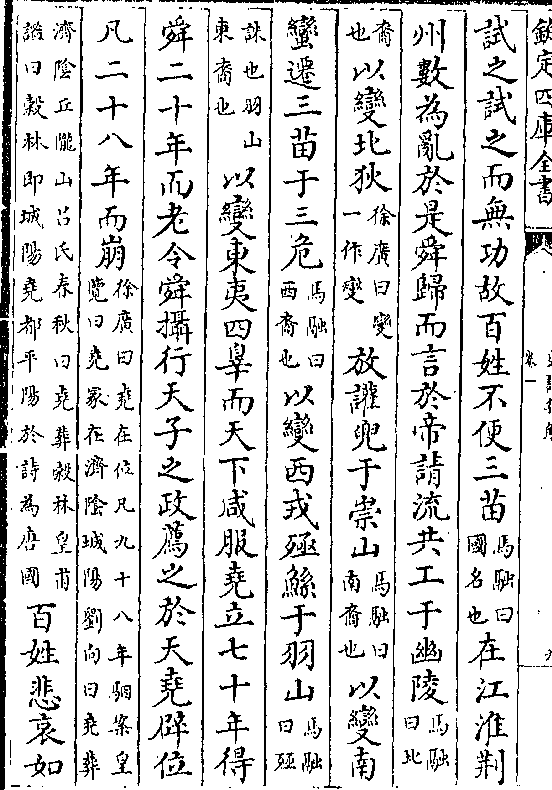 欽定四庫全書
試之試之而無功故百姓不便三苗馬融曰國名也在江淮荆
州數為亂於是舜歸而言於帝請流共工于幽陵馬融曰北
裔也以變北狄徐廣曰變一作燮放讙兜于崇山馬融曰南裔也以變南
蠻遷三苗于三危馬融曰西裔也以變西戎殛鯀于羽山馬融曰殛
誅也羽山東裔也以變東夷四辠而天下咸服堯立七十年得
舜二十年而老令舜攝行天子之政薦之於天堯辟位
凡二十八年而崩徐廣曰堯在位凡九十八年駰案皇覽曰堯冢在濟陰城陽劉向曰堯葬
濟陰丘隴山呂氏春秋曰堯葬穀林皇甫謐曰穀林即城陽堯都平陽於詩為唐國百姓悲哀如